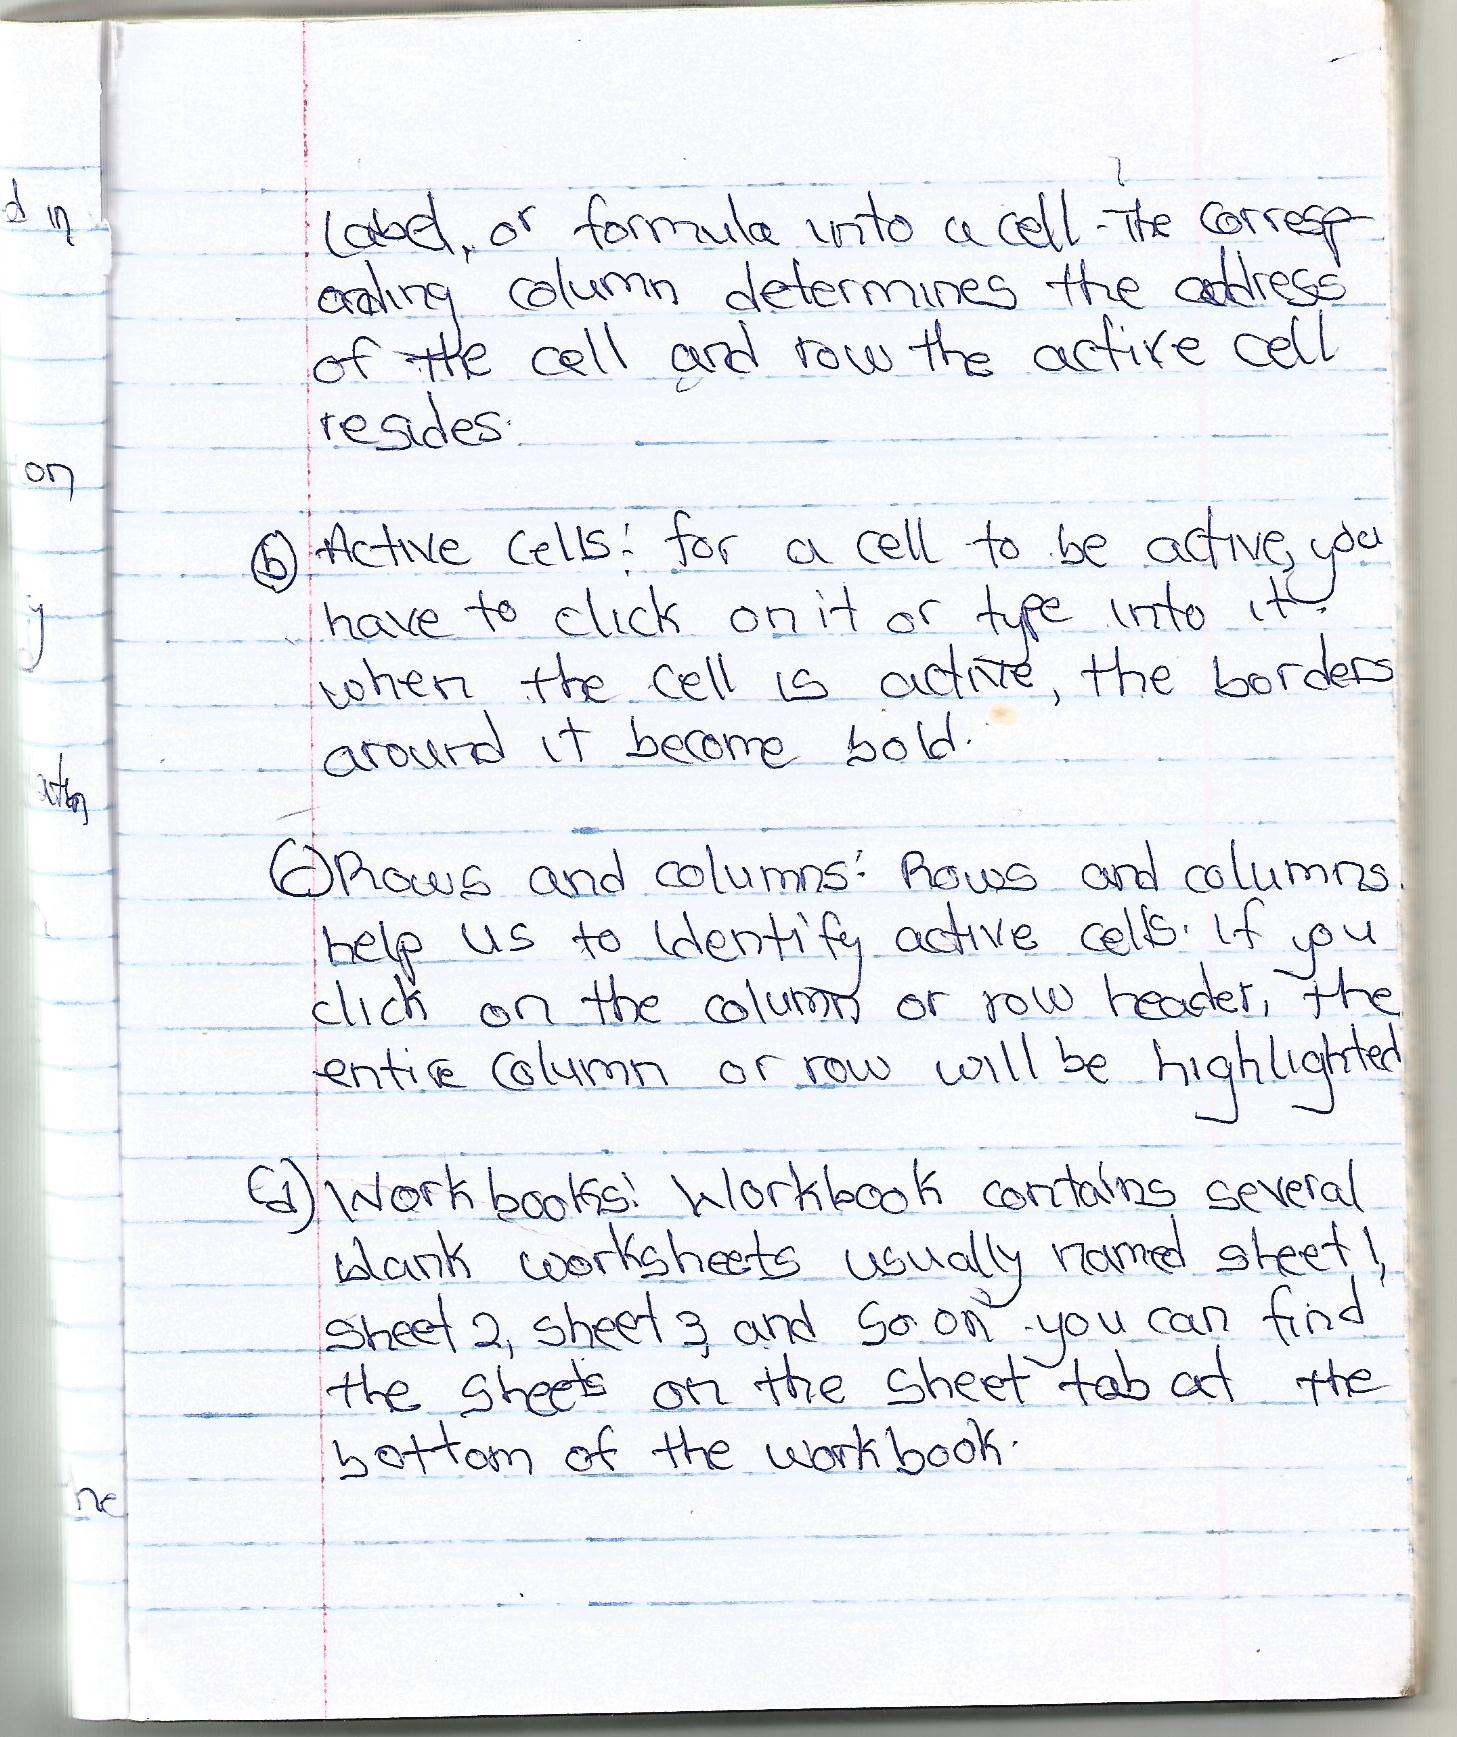 Label, or formula into a cell. The corresp
onding column determines the address
of the cell and row the active cell
resides.
(b) Active cells: for a cell to be active, you
have to click on it or type into it.
when the cell is active, the borders
around it become bold.
(c) Rows and columns: Rows and columns
help us to identify active cells. If you
click on the column or row header, the
entire column or row will be highlighted
(d) Workbooks: Workbook contains several
blank worksheets usually named sheet 1,
sheet 2, sheet 3, and so on. you can find
the sheets on the sheet tab at the
bottom of the workbook.
d in
on
y
ne